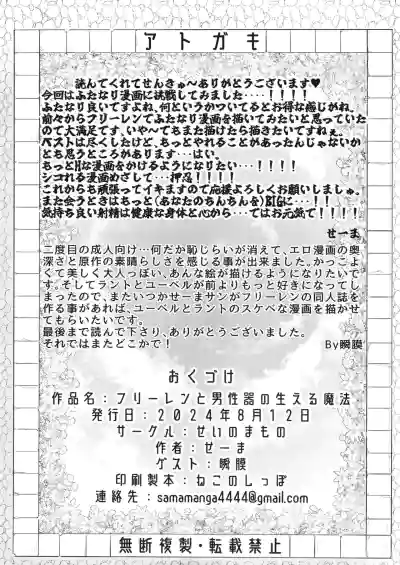 アトガキ
読んでくれてせんきゅ〜ありがとうございます♥
今回はふたなり漫画に挑戦してみました・・・・！！！！
ふたなり良いですよね、何というかついてるとお得な感じがね。
前々からフリーレンでふたなり漫画を描いてみたいと思っていた
ので大満足です、いや〜でもまた描けたら描きたいですねぇ。
ベストは尽くしたけど、もっとやれることがあったんじゃないか
とも思うところがあります・・・はい。
もっとHな漫画をかけるようになりたい・・・！！！！
シコれる漫画めざして・・・押忍！！！！
これからも頑張ってイキますので応援よろしくお願いしましゅ。
また会うときはもっと(あなたのちんちんを)BIGに・・・！！！
気持ち良い射精は健康な身体と心から・・・ではお元気で！！！！
せーま
二度目の成人向け…何だか恥じらいが消えて、エロ漫画の奥
深さと原作の素晴らしさを感じる事が出来ました。かっこよ
くて美しく大人っぽい、あんな絵が描けるようになりたいで
す。そしてラントとユーベルが前よりもっと好きになってし
まったので、またいつかせーまサンがフリーレンの同人誌を
作る事があれば、ユーベルとラントのスケベな漫画を描かせ
てもらいたいです。
最後まで読んで下さり、ありがとうございました。
それではまたどこかで！
By瞬膜
おくづけ
作品名：フリーレンと男性器の生える魔法
発行日：2024年8月12日
サークル：せいのまもの
作者：せーま
ゲスト：瞬膜
印刷製本：ねこのしっぽ
連絡先：samamanga4444@gmail.com
無断複製・転載禁止